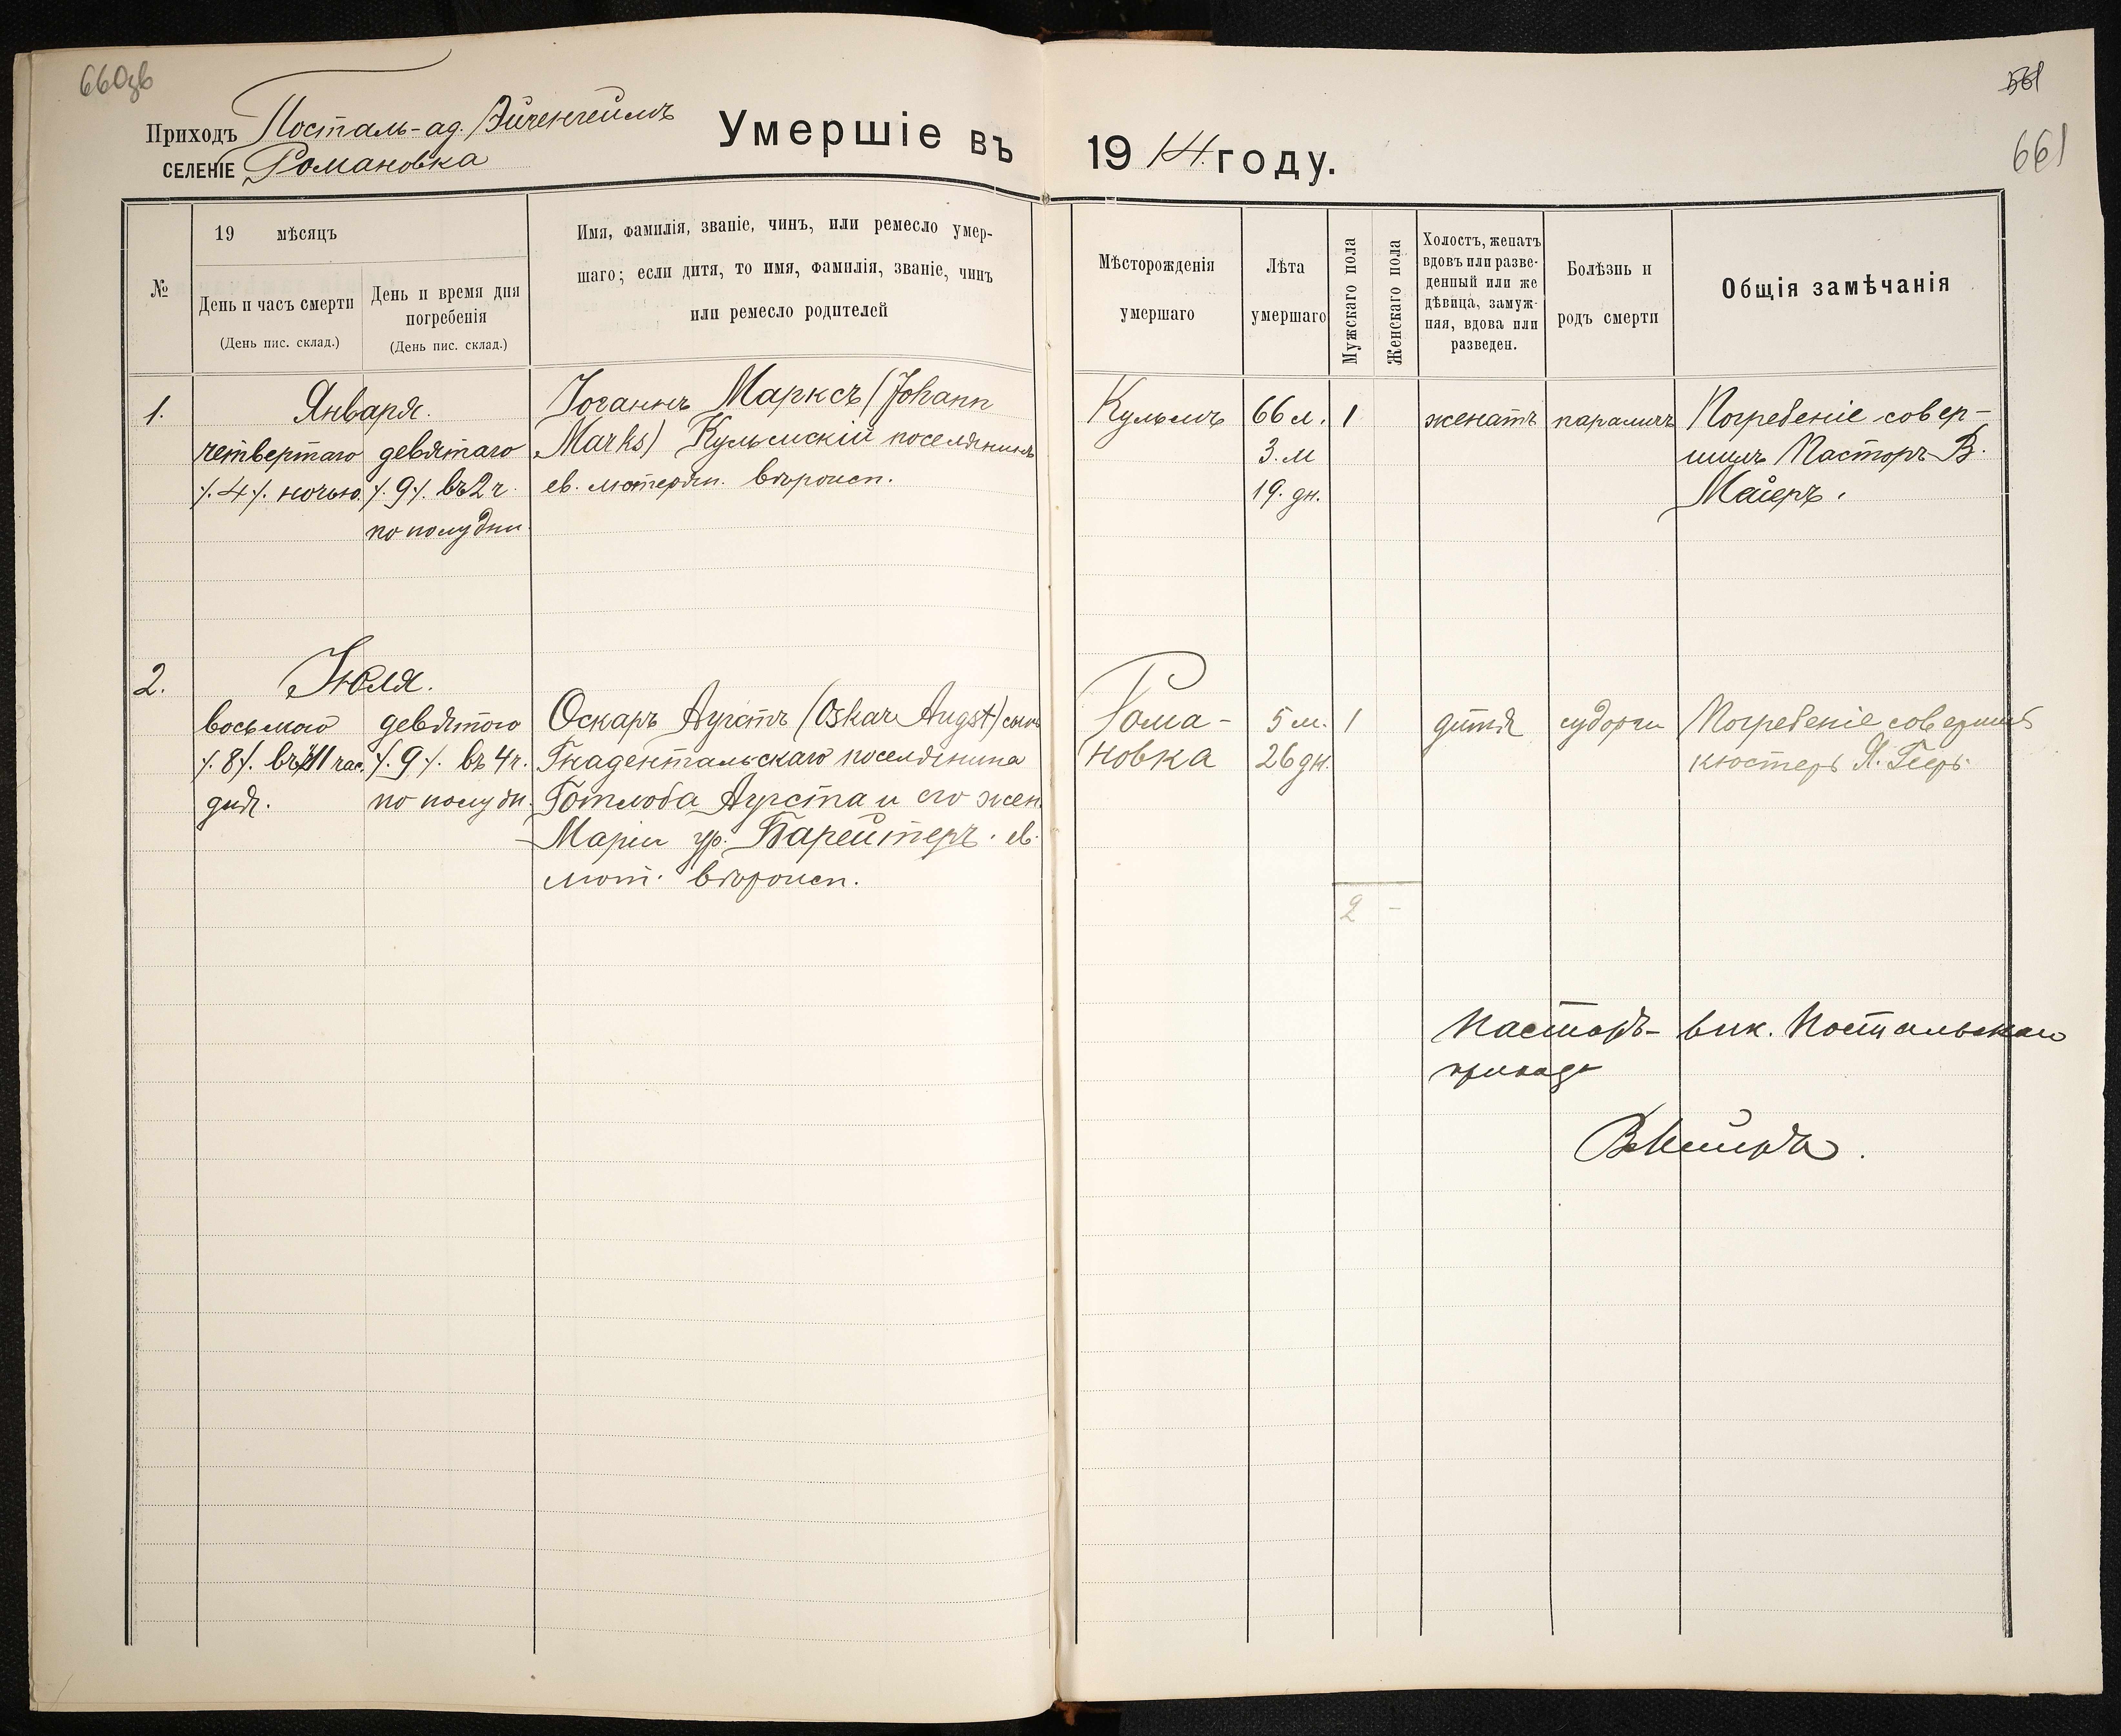 660зв
561
661
Приходъ Посталь-ад. Эйгенгеймъ
СЕЛЕНІЕ Романовка
Умершіе въ 1914. году.
№
19 мѣсяцъ
День и часъ смерти
(День пис. склад.)
День и время дня
погребенія
(День пис. склад.)
Имя, фамилія, званіе, чинъ, или ремесло умер-
шаго; если дитя, то имя, фамилія, званіе, чинъ
или ремесло родителей
Мѣсторожденія
умершаго
Лѣта
умершаго
Мужскаго пола
Женскаго пола
Холостъ, женатъ
вдовъ или разве-
денный или же
дѣвица, замуж-
няя, вдова или
разведен.
Болѣзнь и
родъ смерти
Общія замѣчанія
1.
Января.
четвертаго
/.4/. ночью.
девятаго
/.9/. въ 2 ч.
по полудни.
Іоганнъ Марксъ (Johann
Marks) Кульмскій поселянинъ
ев. лютеран. вѣроисп.
Кульмъ
66 л.
3. м
19. дн.
1
женатъ
параличъ
Погребеніе совер-
шилъ Пасторъ В.
Маіеръ.
2.
Іюля.
восьмого
/.8/. въ 11 час.
дня.
девятого
/.9/. въ 4 ч.
по полудн.
Оскаръ Аугстъ (Oskar Augst) сынъ
Гнаденталъскаго поселянина
Готлоба Аугста и его жен.
Маріи ур. Барейтеръ. ев.
лют. вѣроисп.
Рома-
новка
5 м.
26 дн.
1
дитя
судорги
Погребеніе совершилъ
кюстеръ Я. Гееръ.
2 -
Пасторъ- вик. Постальскаго
прихода
В. Мейеръ.